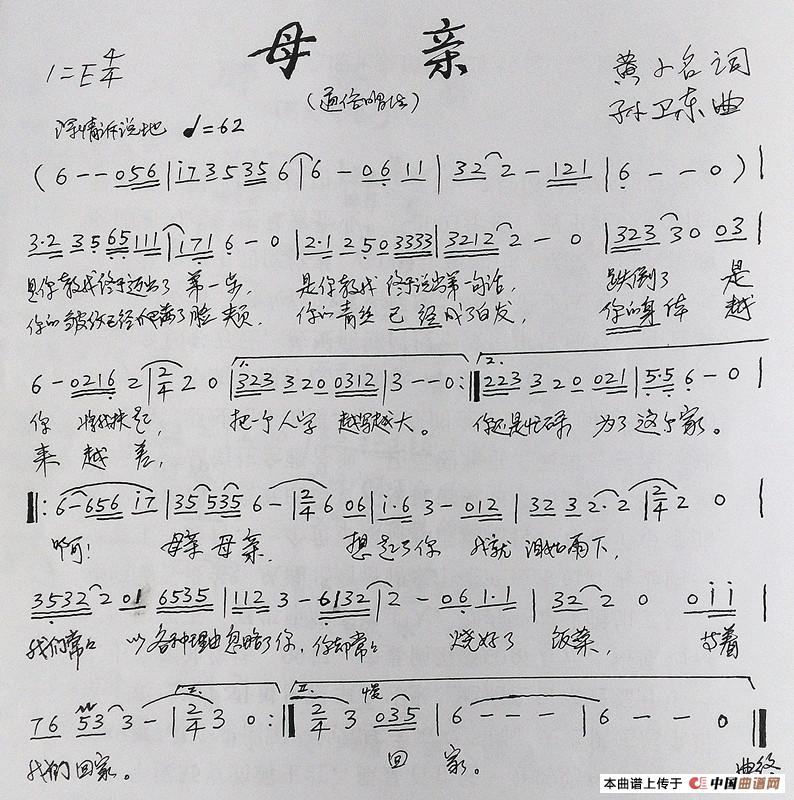 母亲
(通俗唱法)
1=E 4/4
黄小名词
孙卫东曲
深情诉说地 ♩=62
(6 - - 056 | i7 35 35 6 | 6 - 06 11 | 32 2 - 121 | 6 - - 0) |
3·2 35 65 111 | 171 6 - 0 | 2·1 25 0 3333 | 3212 2 - 0 | 323 30 03 |
是你教我终于迈出了第一步, 是你教我终于说出第一句话, 跌倒了 是
你的皱纹已经爬满了脸颊, 你的青丝已经成了白发, 你的身体 越
6 - 0216 2 | 2/4 2 0 | 1. 323 3 20 0312 | 3 - - 0 :| 2. 223 3 20 021 | 5·5 6 - 0 |
你 将我扶起, 把一个人字 越写越大。 你还是忙碌 为了这个家。
来 越 差,
|: 6 - 656 i7 | 35 535 6 - | 2/4 6 06 | i·6 3 - 012 | 32 3 2·2 | 2/4 2 0 |
啊! 母亲母亲 想起了你 我就泪如雨下,
3532 2 01 6535 | 112 3 - 6132 | 2 - 06 1·1 | 32 2 0 0ii |
我们常常 以各种理由忽略了你, 你却常常 烧好了 饭菜, 等着
76 53 3 - | I. 2/4 3 0 :| II. 2/4 3 慢 035 | 6 - - - | 6 - - 0 ||
我们回家。 回 家。 曲终
本曲谱上传于 中国曲谱网